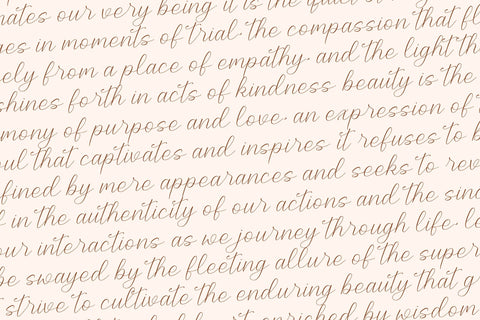 nates our very being it is the quiet
ges in moments of trial. the compassion that fl
ely from a place of empathy. and the light th
shines forth in acts of kindness beauty is the
mony of purpose and love. an expression of
oul that captivates and inspires it refuses to b
fined by mere appearances and seeks to rev
in the authenticity of our actions and the sinc
our interactions as we journey through life. le
be swayed by the fleeting allure of the super
strive to cultivate the enduring beauty that g
enriched by wisdom